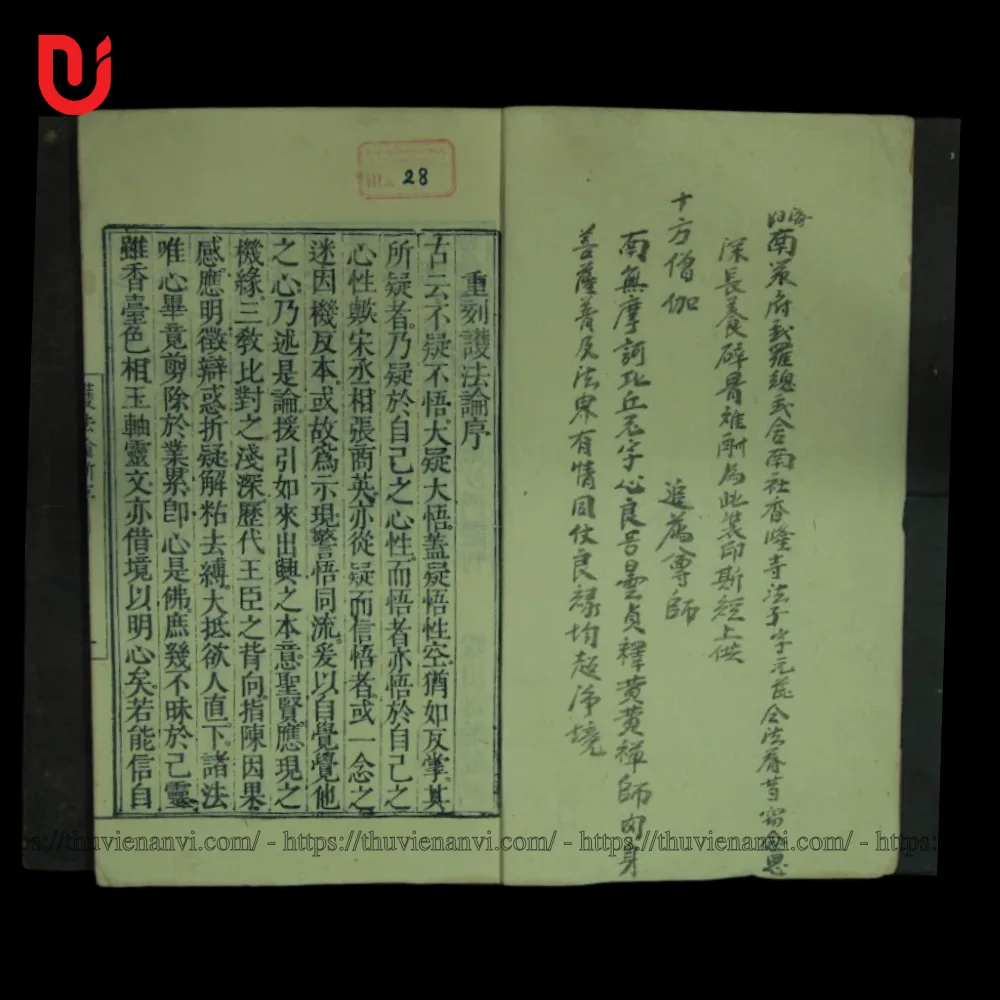 南策府武羅總武舍南社香隆寺法子字元
深長養碎骨難酬爲此裝印斯經上供
十方僧伽
追薦尊師
南無摩訶比丘名字心良号曇貞釋黄黄禅師肉身
菩薩普及法界有情同仗良緣均超浄境
28
重刻護法論序
古云不疑不悟大疑大悟蓋疑悟性空猶如反掌其
所疑者乃疑於自己之心性而悟者亦悟於自己之
心性歟宋丞相張商英亦從疑而信悟者或一念之
迷因機反本或故爲示現警悟同流爰以自覺覺他
之心乃述是論援引如來出興之本意聖賢應現之
機緣三敎比對之淺深歷代王臣之背向指陳因果
感應明徵辯惑折疑解粘去縛大抵欲人直下諸法
唯心畢竟剪除於業累卽心是佛庶幾不昧於己靈
雖香臺色相玉軸靈文亦借境以明心矣若能信自
https://thuvienanvi.com/ - https://thuvienanvi.com/ - https://thuvienanvi.com/